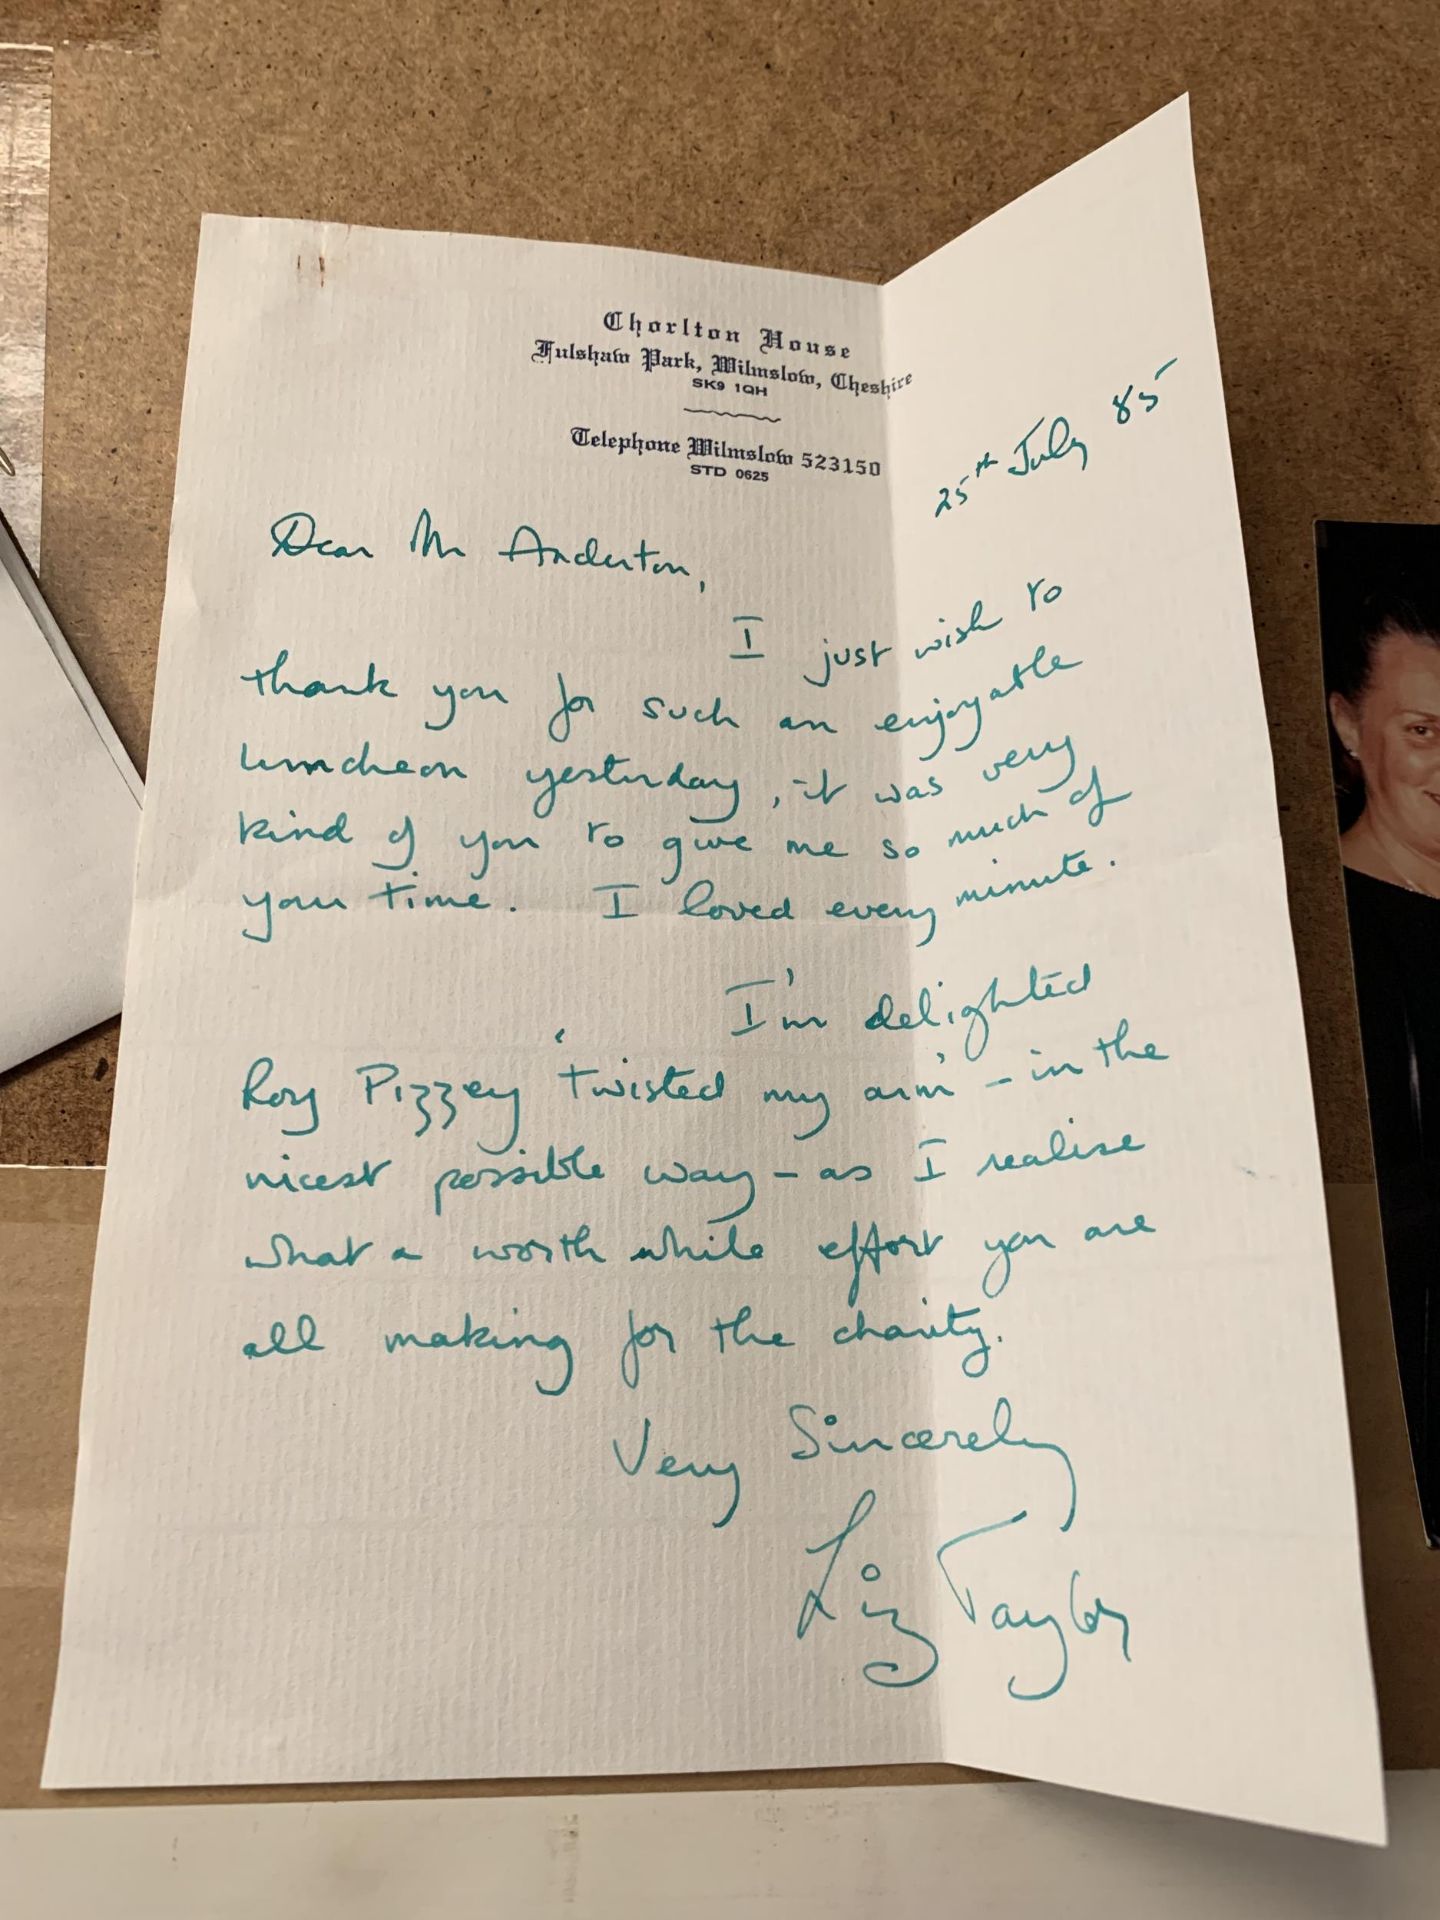 Chorlton House
Fulshaw Park, Wilmslow, Cheshire
SK9 1QH
Telephone Wilmslow 523150
STD 0625
25th July 85
Dear Mr Anderton,
I just wish to
thank you for such an enjoyable
luncheon yesterday, it was very
kind of you to give me so much of
your time. I loved every minute.
I'm delighted
Roy Pizzey 'twisted my arm' - in the
nicest possible way - as I realise
what a worth while effort you are
all making for the charity.
Very Sincerely
Liz Taylor